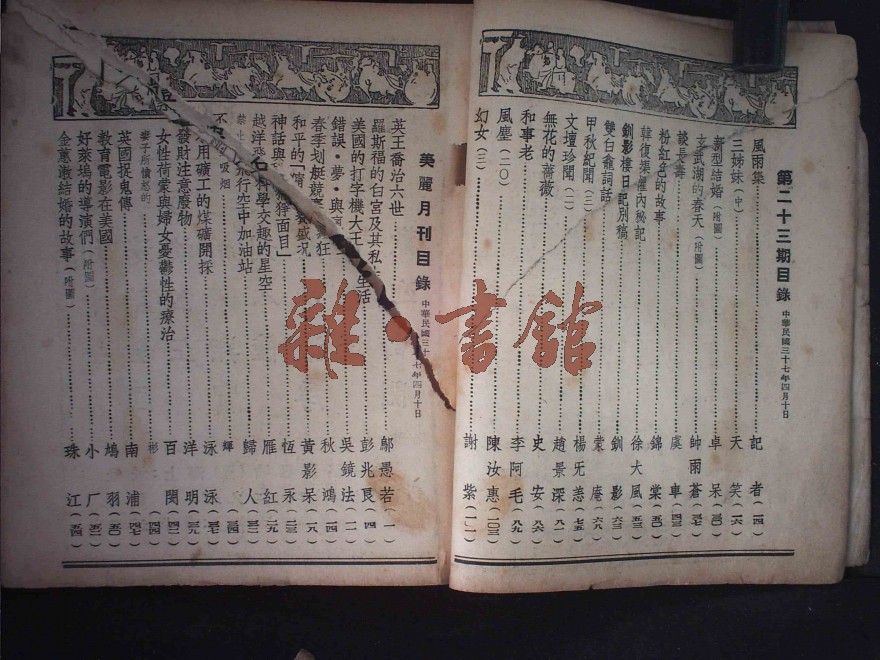 第二十三期目錄 中華民國三十七年四月十日
風雨集 記者(一四)
三姊妹(中) 天笑(一六)
新型結婚(附圖) 卓呆(三〇)
玄武湖的春天(附圖) 帥雨蒼(三七)
談長壽 虞車(四三)
粉紅色的故事 錦棠(五〇)
韓復榘檔內秘記 徐大風
釧影樓日記別稿 釧影(六三)
雙白龕詞話 蒙庵(六八)
甲秋紀聞(三) 楊旡恙(七五)
文壇珍聞(二) 趙景深(八二)
無花的薔薇 史安(八六)
和事老 李阿毛(八九)
風塵(二〇) 陳汝惠(一〇三)
幻女(三) 謝紫
美麗月刊目錄 中華民國三十七年四月十日
英王喬治六世 鄔愚若(一)
羅斯福的白宮及其私生活 彭兆良(四)
美國的打字機大王 吳鏡法(一一)
錯誤·夢·與 秋鴻(一四)
春季划艇競賽 狂 黃影呆(一八)
和平的 盛況 恆永(二三)
神話與 猙獰面目」 雁紅(二八)
越洋飛行空中加油站 歸人(三二)
科學交趣的星空
禁止吸烟 輝(三四)
不用礦工的煤礦開採 泳泳(三五)
發財注意廢物 洋明(三九)
女性荷蒙與婦女憂鬱性的療治 百閔(四二)
妻子所憤怒的 彬(四四)
英國捉鬼傳 南浦(四七)
教育電影在美國 鳩羽(五〇)
好萊塢的導演們(附圖) 小厂(五二)
金蕙漵結婚的故事(附圖) 珠江(五四)
雜·書館